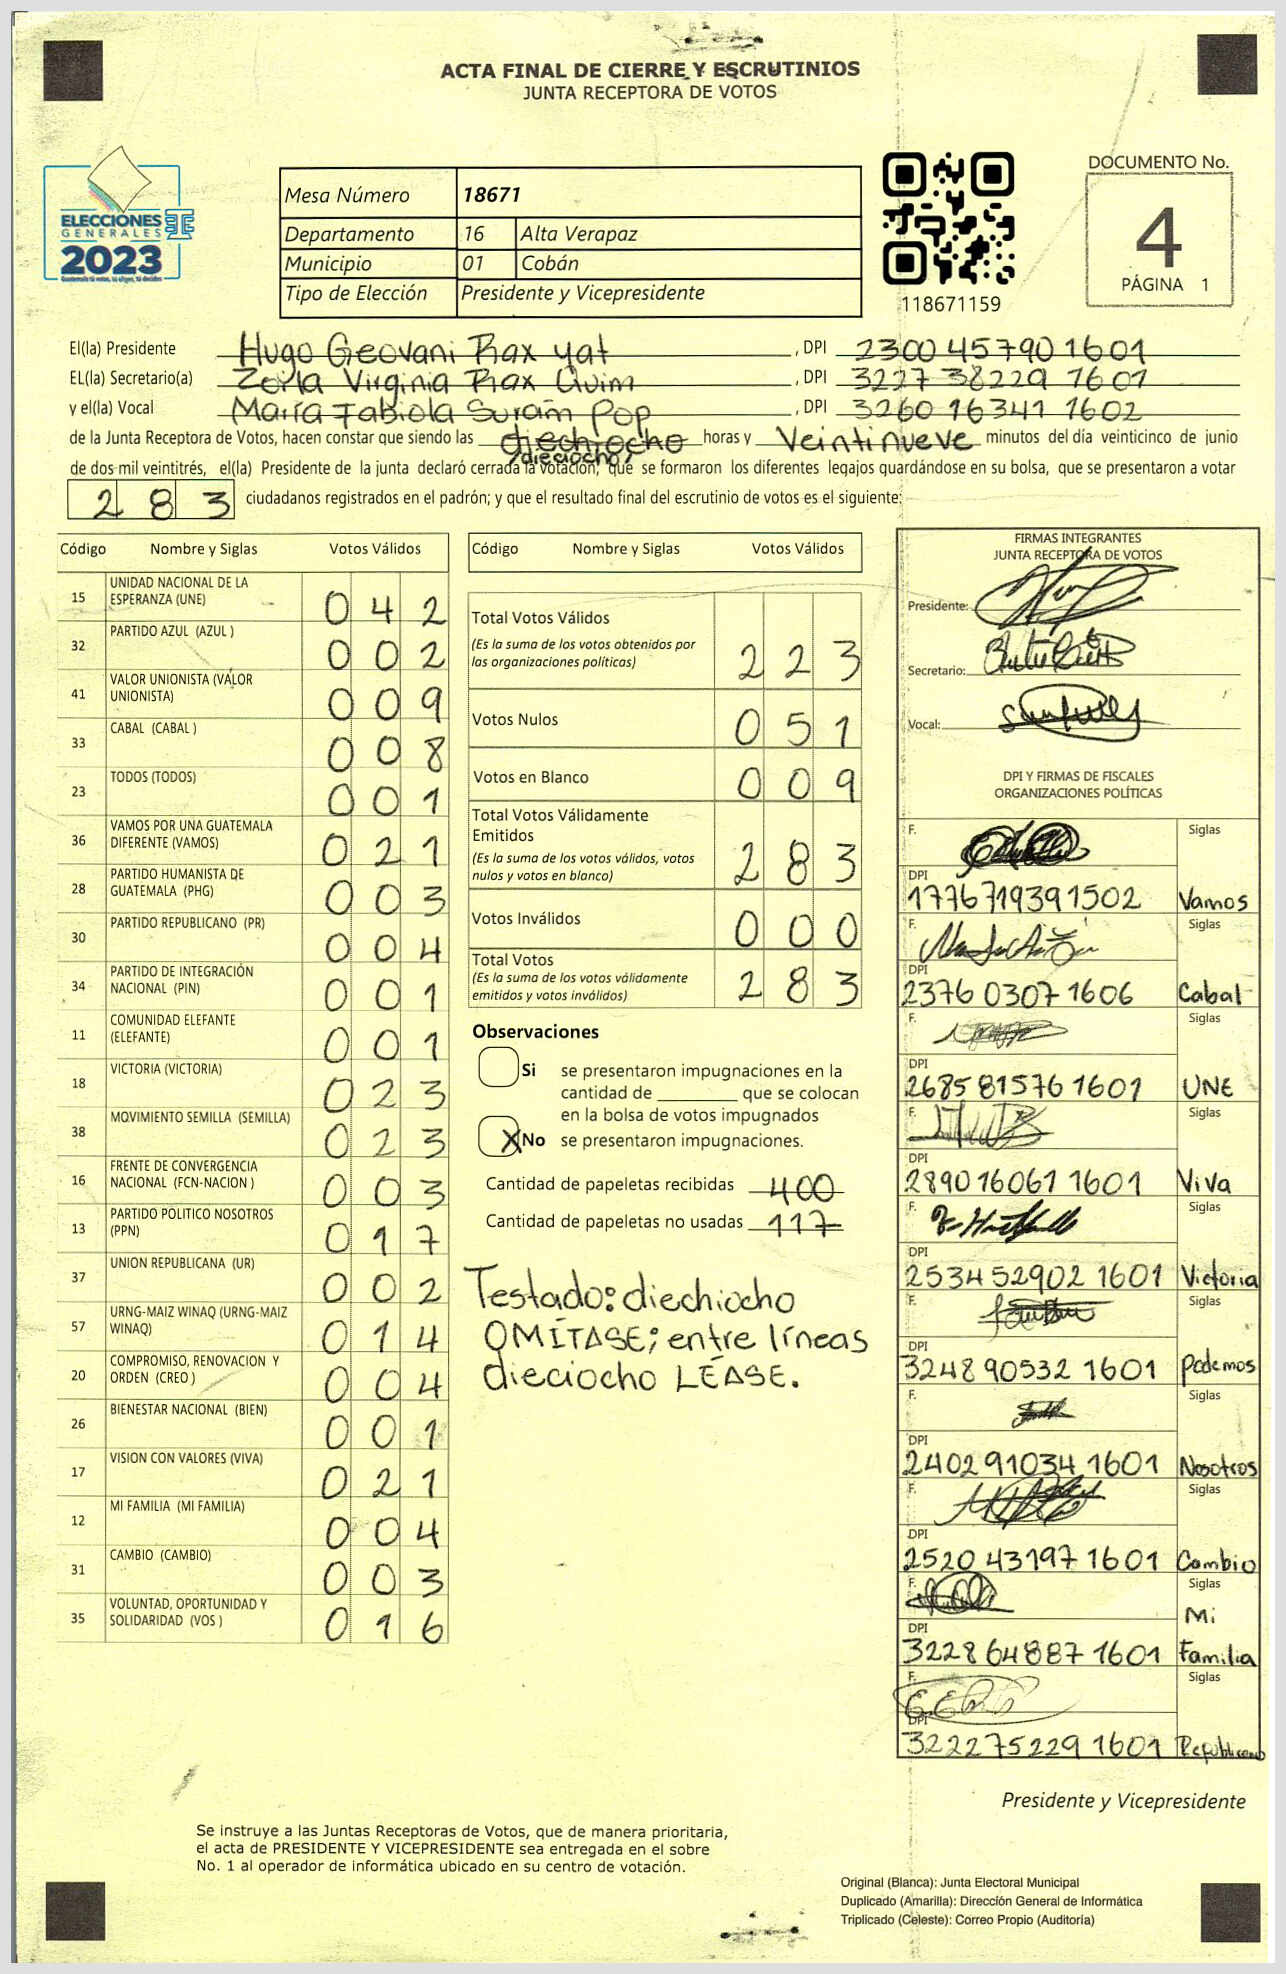 ACTA FINAL DE CIERRE Y ESCRUTINIOS
JUNTA RECEPTORA DE VOTOS
ELECCIONES
GENERALES
2023
Mesa Número 18671
Departamento 16 Alta Verapaz
Municipio 01 Cobán
Tipo de Elección Presidente y Vicepresidente
118671159
DOCUMENTO No.
4
PÁGINA 1
El(la) Presidente Hugo Geovani Rax yat , DPI 2300 45790 1601
EL(la) Secretario(a) Zoila Virginia Rax Quim , DPI 3227 38229 1601
y el(la) Vocal María Fabiola Suram Pop , DPI 3260 16341 1602
de la Junta Receptora de Votos, hacen constar que siendo las diechiocho horas y Veintinueve minutos del día veinticinco de junio
dieciocho
de dos mil veintitrés, el(la) Presidente de la junta declaró cerrada la votación, que se formaron los diferentes legajos guardándose en su bolsa, que se presentaron a votar
283 ciudadanos registrados en el padrón; y que el resultado final del escrutinio de votos es el siguiente:
Código Nombre y Siglas Votos Válidos
15 UNIDAD NACIONAL DE LA ESPERANZA (UNE) 042
32 PARTIDO AZUL (AZUL ) 002
41 VALOR UNIONISTA (VALOR UNIONISTA) 009
33 CABAL (CABAL ) 008
23 TODOS (TODOS) 001
36 VAMOS POR UNA GUATEMALA DIFERENTE (VAMOS) 021
28 PARTIDO HUMANISTA DE GUATEMALA (PHG) 003
30 PARTIDO REPUBLICANO (PR) 004
34 PARTIDO DE INTEGRACIÓN NACIONAL (PIN) 001
11 COMUNIDAD ELEFANTE (ELEFANTE) 001
18 VICTORIA (VICTORIA) 023
38 MOVIMIENTO SEMILLA (SEMILLA) 023
16 FRENTE DE CONVERGENCIA NACIONAL (FCN-NACION ) 003
13 PARTIDO POLITICO NOSOTROS (PPN) 017
37 UNION REPUBLICANA (UR) 002
57 URNG-MAIZ WINAQ (URNG-MAIZ WINAQ) 014
20 COMPROMISO, RENOVACION Y ORDEN (CREO ) 004
26 BIENESTAR NACIONAL (BIEN) 001
17 VISION CON VALORES (VIVA) 021
12 MI FAMILIA (MI FAMILIA) 004
31 CAMBIO (CAMBIO) 003
35 VOLUNTAD, OPORTUNIDAD Y SOLIDARIDAD (VOS ) 016
Código Nombre y Siglas Votos Válidos
Total Votos Válidos 223
(Es la suma de los votos obtenidos por
las organizaciones políticas)
Votos Nulos 051
Votos en Blanco 009
Total Votos Válidamente
Emitidos 283
(Es la suma de los votos válidos, votos
nulos y votos en blanco)
Votos Inválidos 000
Total Votos 283
(Es la suma de los votos válidamente
emitidos y votos inválidos)
Observaciones
Si se presentaron impugnaciones en la
cantidad de ________ que se colocan
en la bolsa de votos impugnados
X No se presentaron impugnaciones.
Cantidad de papeletas recibidas 400
Cantidad de papeletas no usadas 117
Testado: diechiocho
OMÍTASE; entre líneas
dieciocho LÉASE.
FIRMAS INTEGRANTES
JUNTA RECEPTORA DE VOTOS
Presidente:
Secretario:
Vocal:
DPI Y FIRMAS DE FISCALES
ORGANIZACIONES POLÍTICAS
F. Siglas
DPI
1776719391502 Vamos
F. Siglas
DPI
2376 0307 1606 Cabal
F. Siglas
DPI
268581576 1601 UNE
F. Siglas
DPI
289016061 1601 Viva
F. Siglas
DPI
253452902 1601 Victoria
F. Siglas
DPI
324890532 1601 Podemos
F. Siglas
DPI
240291034 1601 Nosotros
F. Siglas
DPI
2520 43197 1601 Cambio
F. Siglas
DPI Mi
3228 64887 1601 Familia
F. Siglas
DPI
322275229 1601 Republicano
Presidente y Vicepresidente
Se instruye a las Juntas Receptoras de Votos, que de manera prioritaria,
el acta de PRESIDENTE Y VICEPRESIDENTE sea entregada en el sobre
No. 1 al operador de informática ubicado en su centro de votación.
Original (Blanca): Junta Electoral Municipal
Duplicado (Amarilla): Dirección General de Informática
Triplicado (Celeste): Correo Propio (Auditoría)